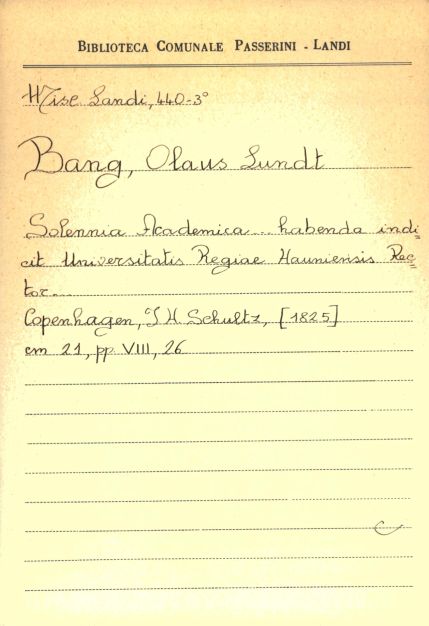 BIBLIOTECA COMUNALE PASSERINI - LANDI
Misc. Landi, 440-3°
Bang, Olaus Lundt
Solennia Academica ... habenda indi=
cit Universitatis Regiae Hauniensis Rec=
tor...
Copenhagen, J H Schultz, [1825]
cm 21, pp. VIII, 26